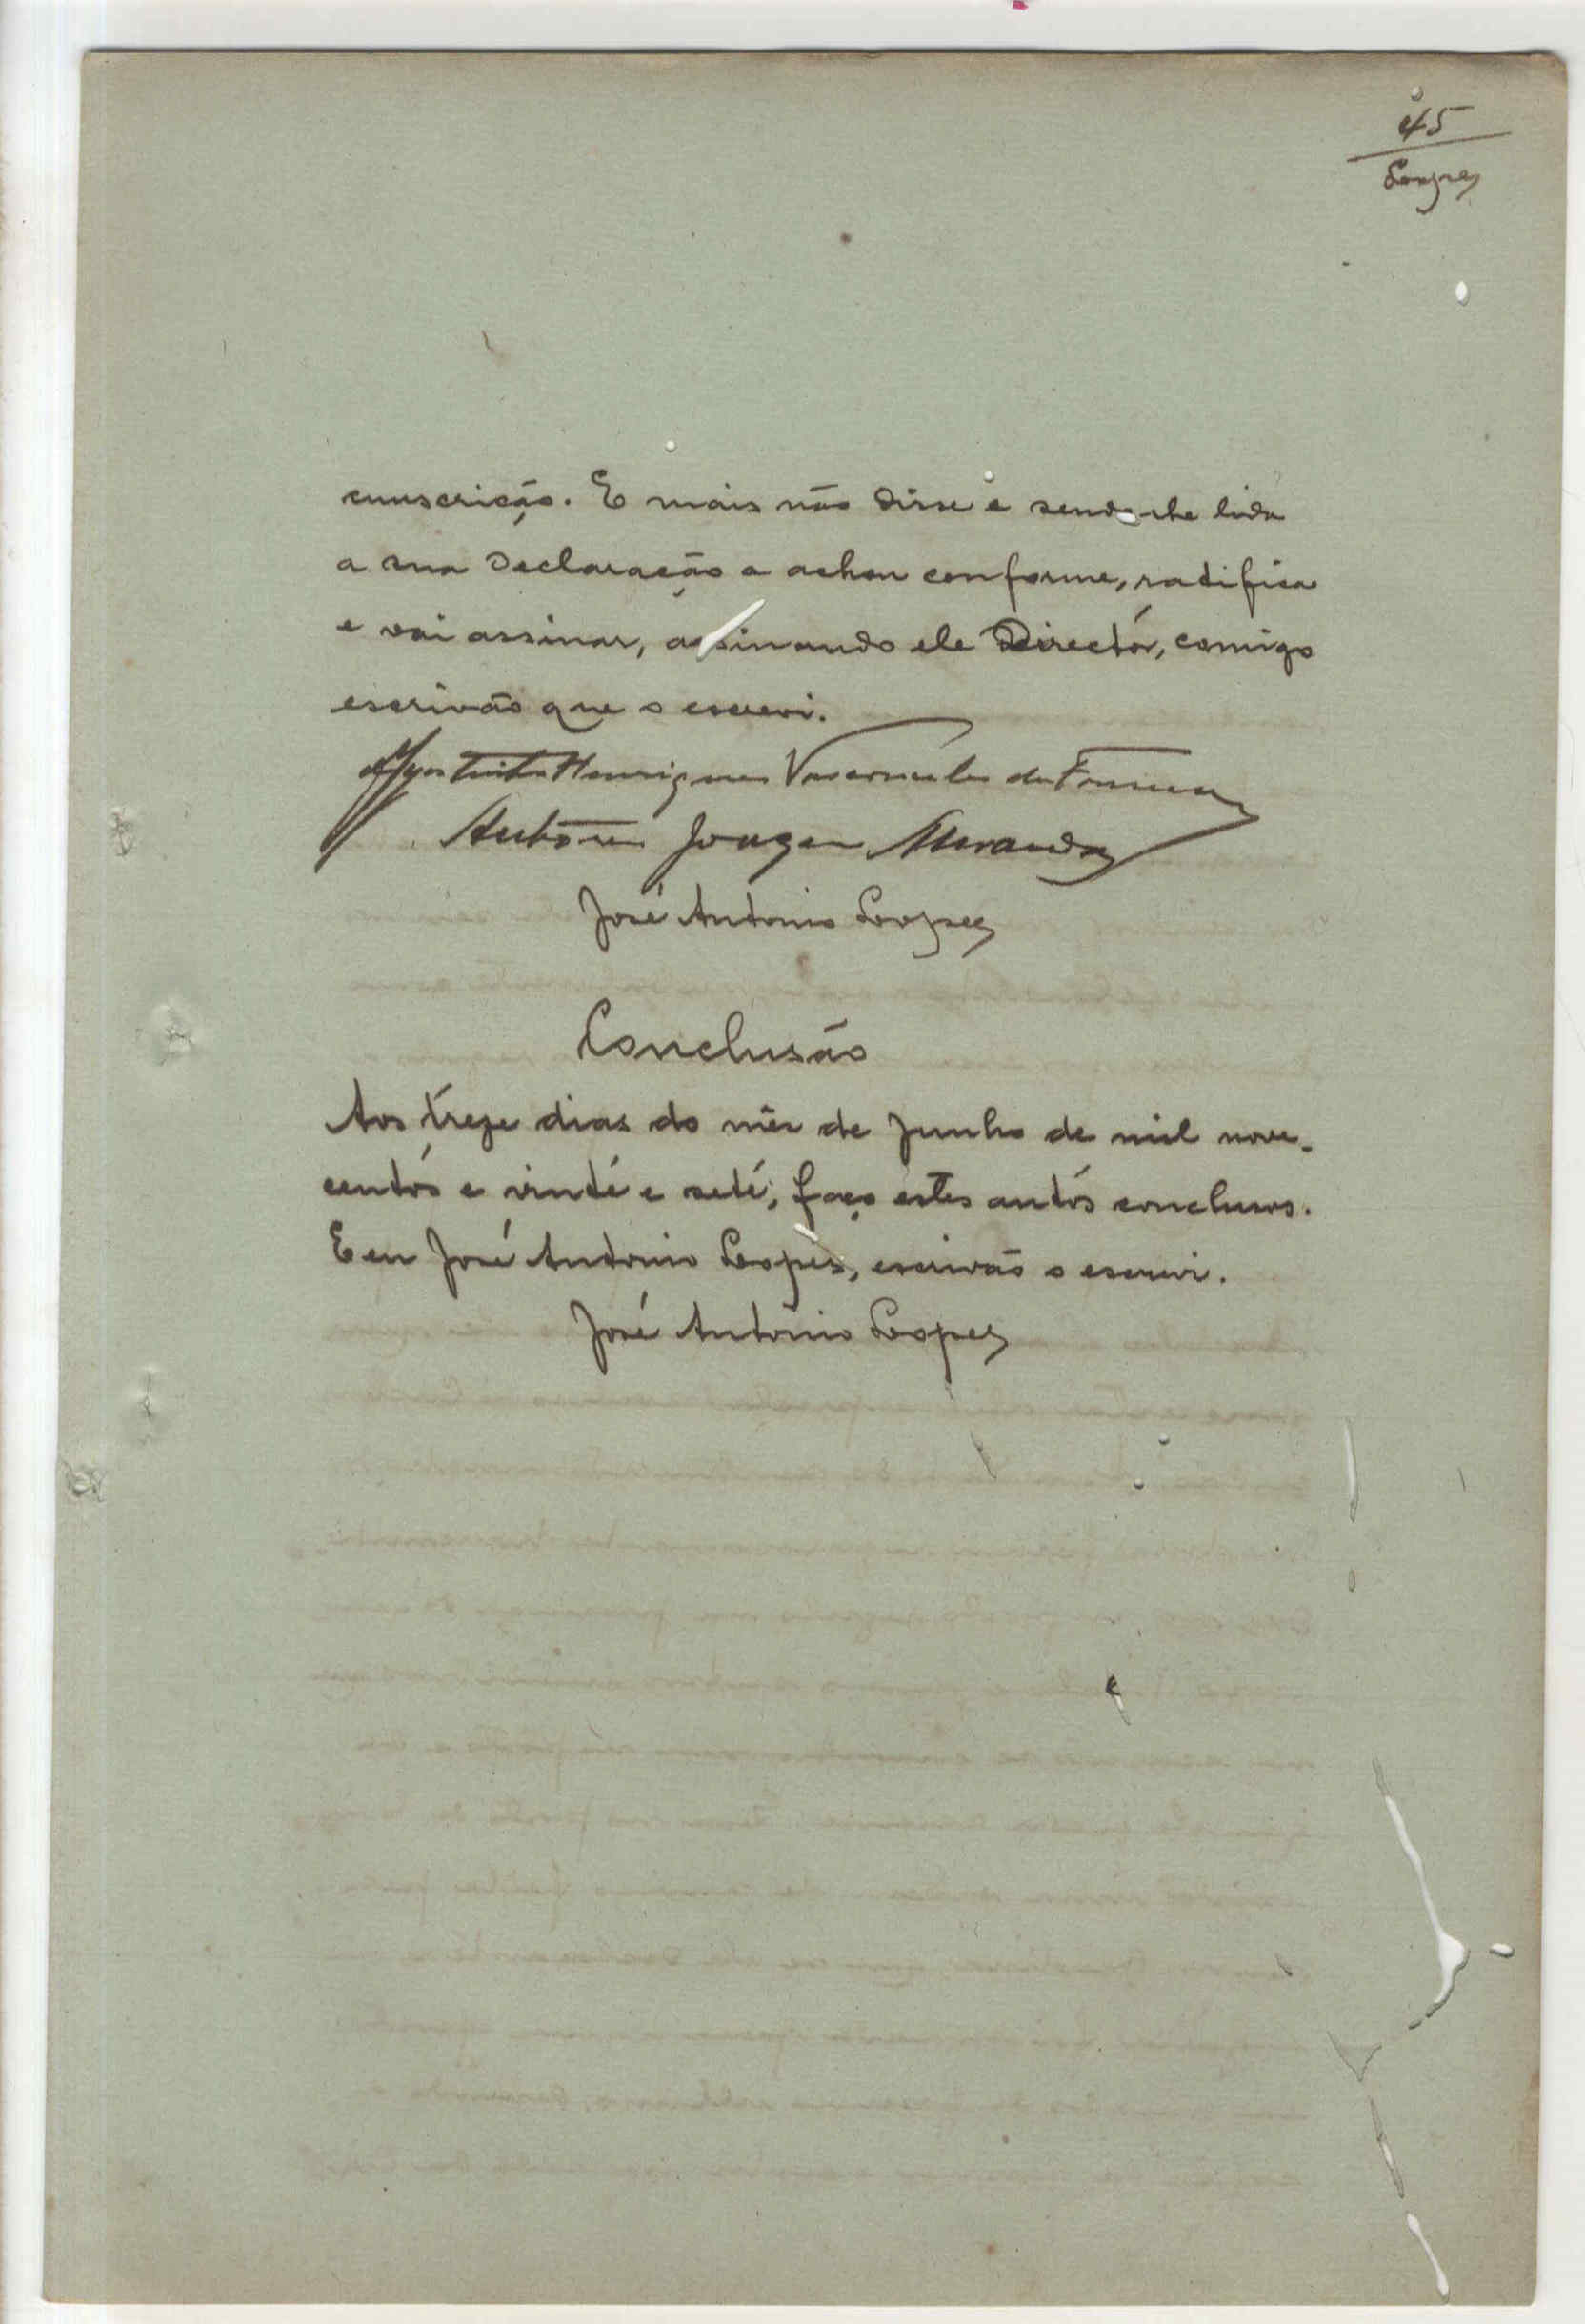 45
Lopes
cunscrição. E mais não disse e sendo-lhe lida
a sua declaração a achou conforme, ratifica
e vai assinar, assinando ele Director, comigo
escrivão que o escrevi.
Agostinho Henriques Vasconcelos da Fonseca
António Miranda
José Antonio Lopes
Conclusão
Aos treze dias do mês de Junho de mil nove-
centos e vinte e sete, faço estes autos conclusos.
E eu José Antonio Lopes, escrivão o escrevi.
José António Lopes